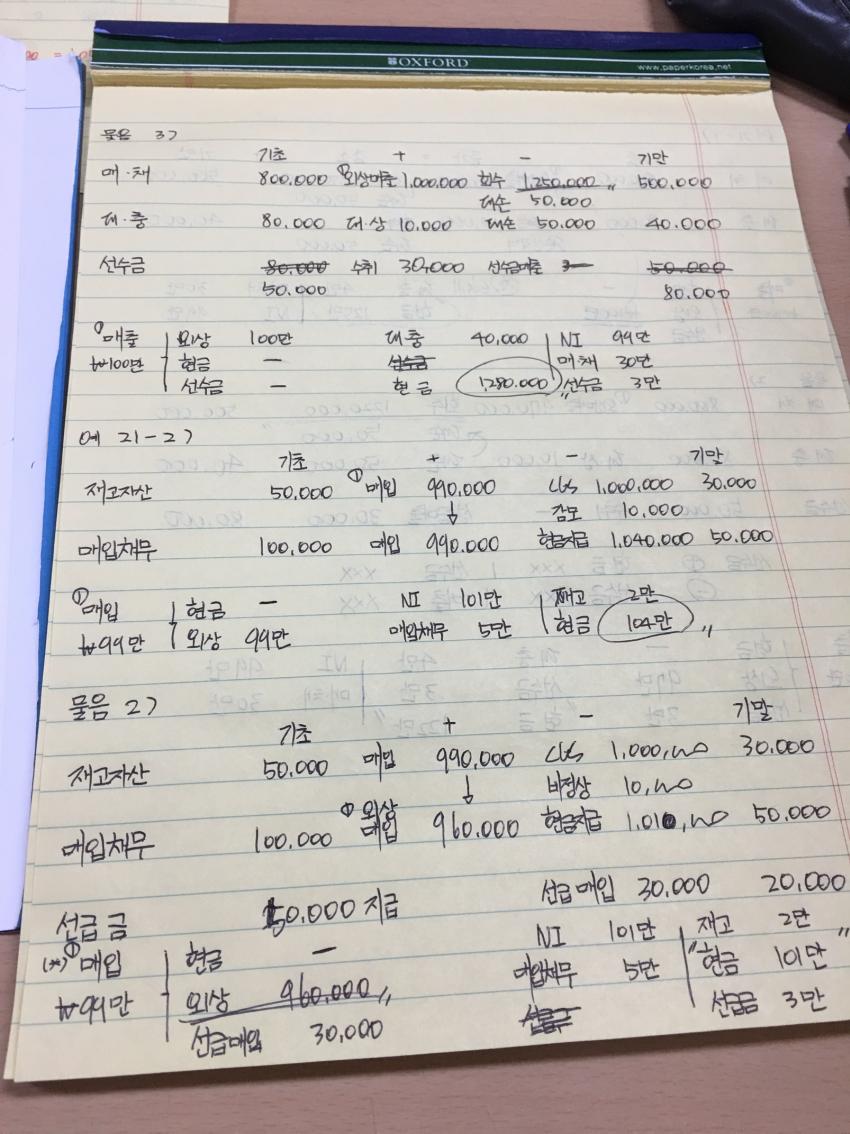 OXFORD
www.paperkorea.net
물음 3>
기초 + - 기말
매·채 800,000 ①외상매출 1,000,000 회수 1,250,000 〃 500,000
대손 50,000
대·충 80,000 대·상 10,000 대손 50,000 40,000
선수금 80,000 수취 30,000 선수금매출 50,000
50,000 80,000
①매출 외상 100만 대충 40,000 NI 99만
₩100만 현금 — 선수금 매·채 30만
선수금 — 현금 1,280,000 〃 선수금 3만
예 21-2>
기초 + - 기말
재고자산 50,000 ①매입 990,000 CGS 1,000,000 30,000
↓ 감모 10,000
매입채무 100,000 매입 990,000 현금지급 1,040,000 50,000
①매입 현금 — NI 101만 재고 2만
₩99만 외상 99만 매입채무 5만 현금 104만 〃
물음 2>
기초 + - 기말
재고자산 50,000 매입 990,000 CGS 1,000,000 30,000
↓ 비정상 10,000
매입채무 100,000 ①외상매입 960,000 현금지급 1,010,000 50,000
선급금 50,000 지급 선급매입 30,000 20,000
(*)①매입 현금 — NI 101만 재고 2만
₩99만 외상 960,000 〃 매입채무 5만 〃현금 101만 〃
선급매입 30,000 선급금 선급금 3만